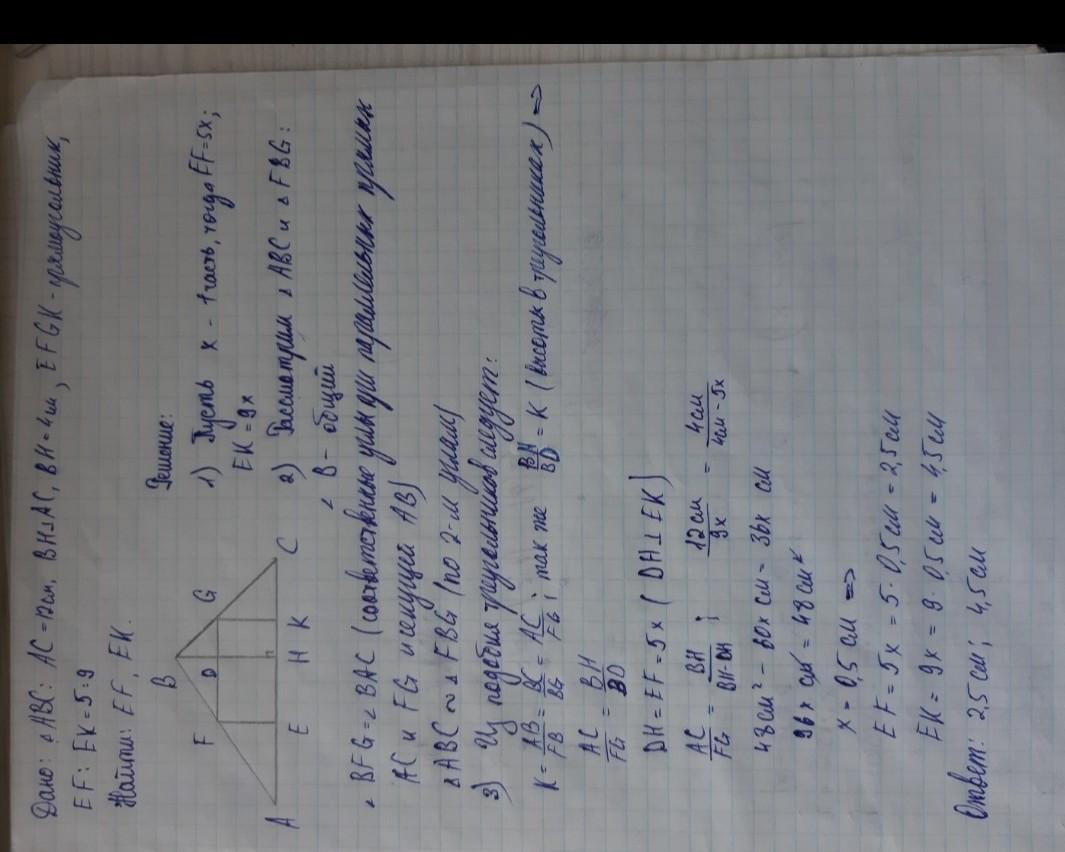 Дано: ▵ABC: AC=12см, BH⊥AC, BH=4см, EFGK-прямоугольник,
EF:EK=5:9
Найти: EF, EK.
B
F
D
G
A
E
H
K
C
Решение:
1) Пусть x - 1 часть, тогда EF=5x;
EK=9x
2) Рассмотрим ▵ABC и ▵FBG:
∠B - общий
∠BFG=∠BAC (соответственные углы при параллельных прямых
AC и FG и секущей AB)
▵ABC ∾ ▵FBG (по 2-м углам)
3) Из подобия треугольников следует:
K = AB/FB = BC/BG = AC/FG; так же BH/BD = K (высоты в треугольниках) ⇒
AC/FG = BH/BD
DH=EF=5x (DH⊥EK)
AC/FG = BH/BH-DH; 12см/9x = 4см/4см-5x
48см² - 60x см = 36x см
96x см = 48см²
x=0,5см ⇒
EF=5x=5·0,5см=2,5см
EK=9x=9·0,5см=4,5см
Ответ: 2,5см; 4,5см